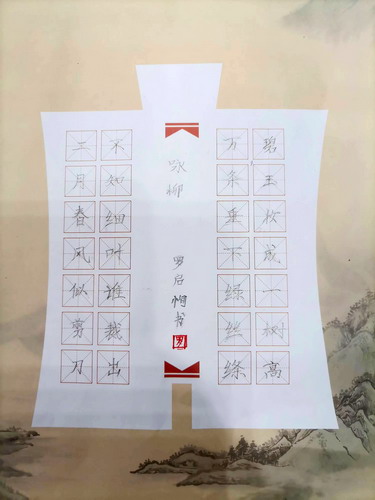 碧玉妆成一树高
万条垂下绿丝绦
咏柳
罗 书
不知细叶谁裁出
二月春风似剪刀